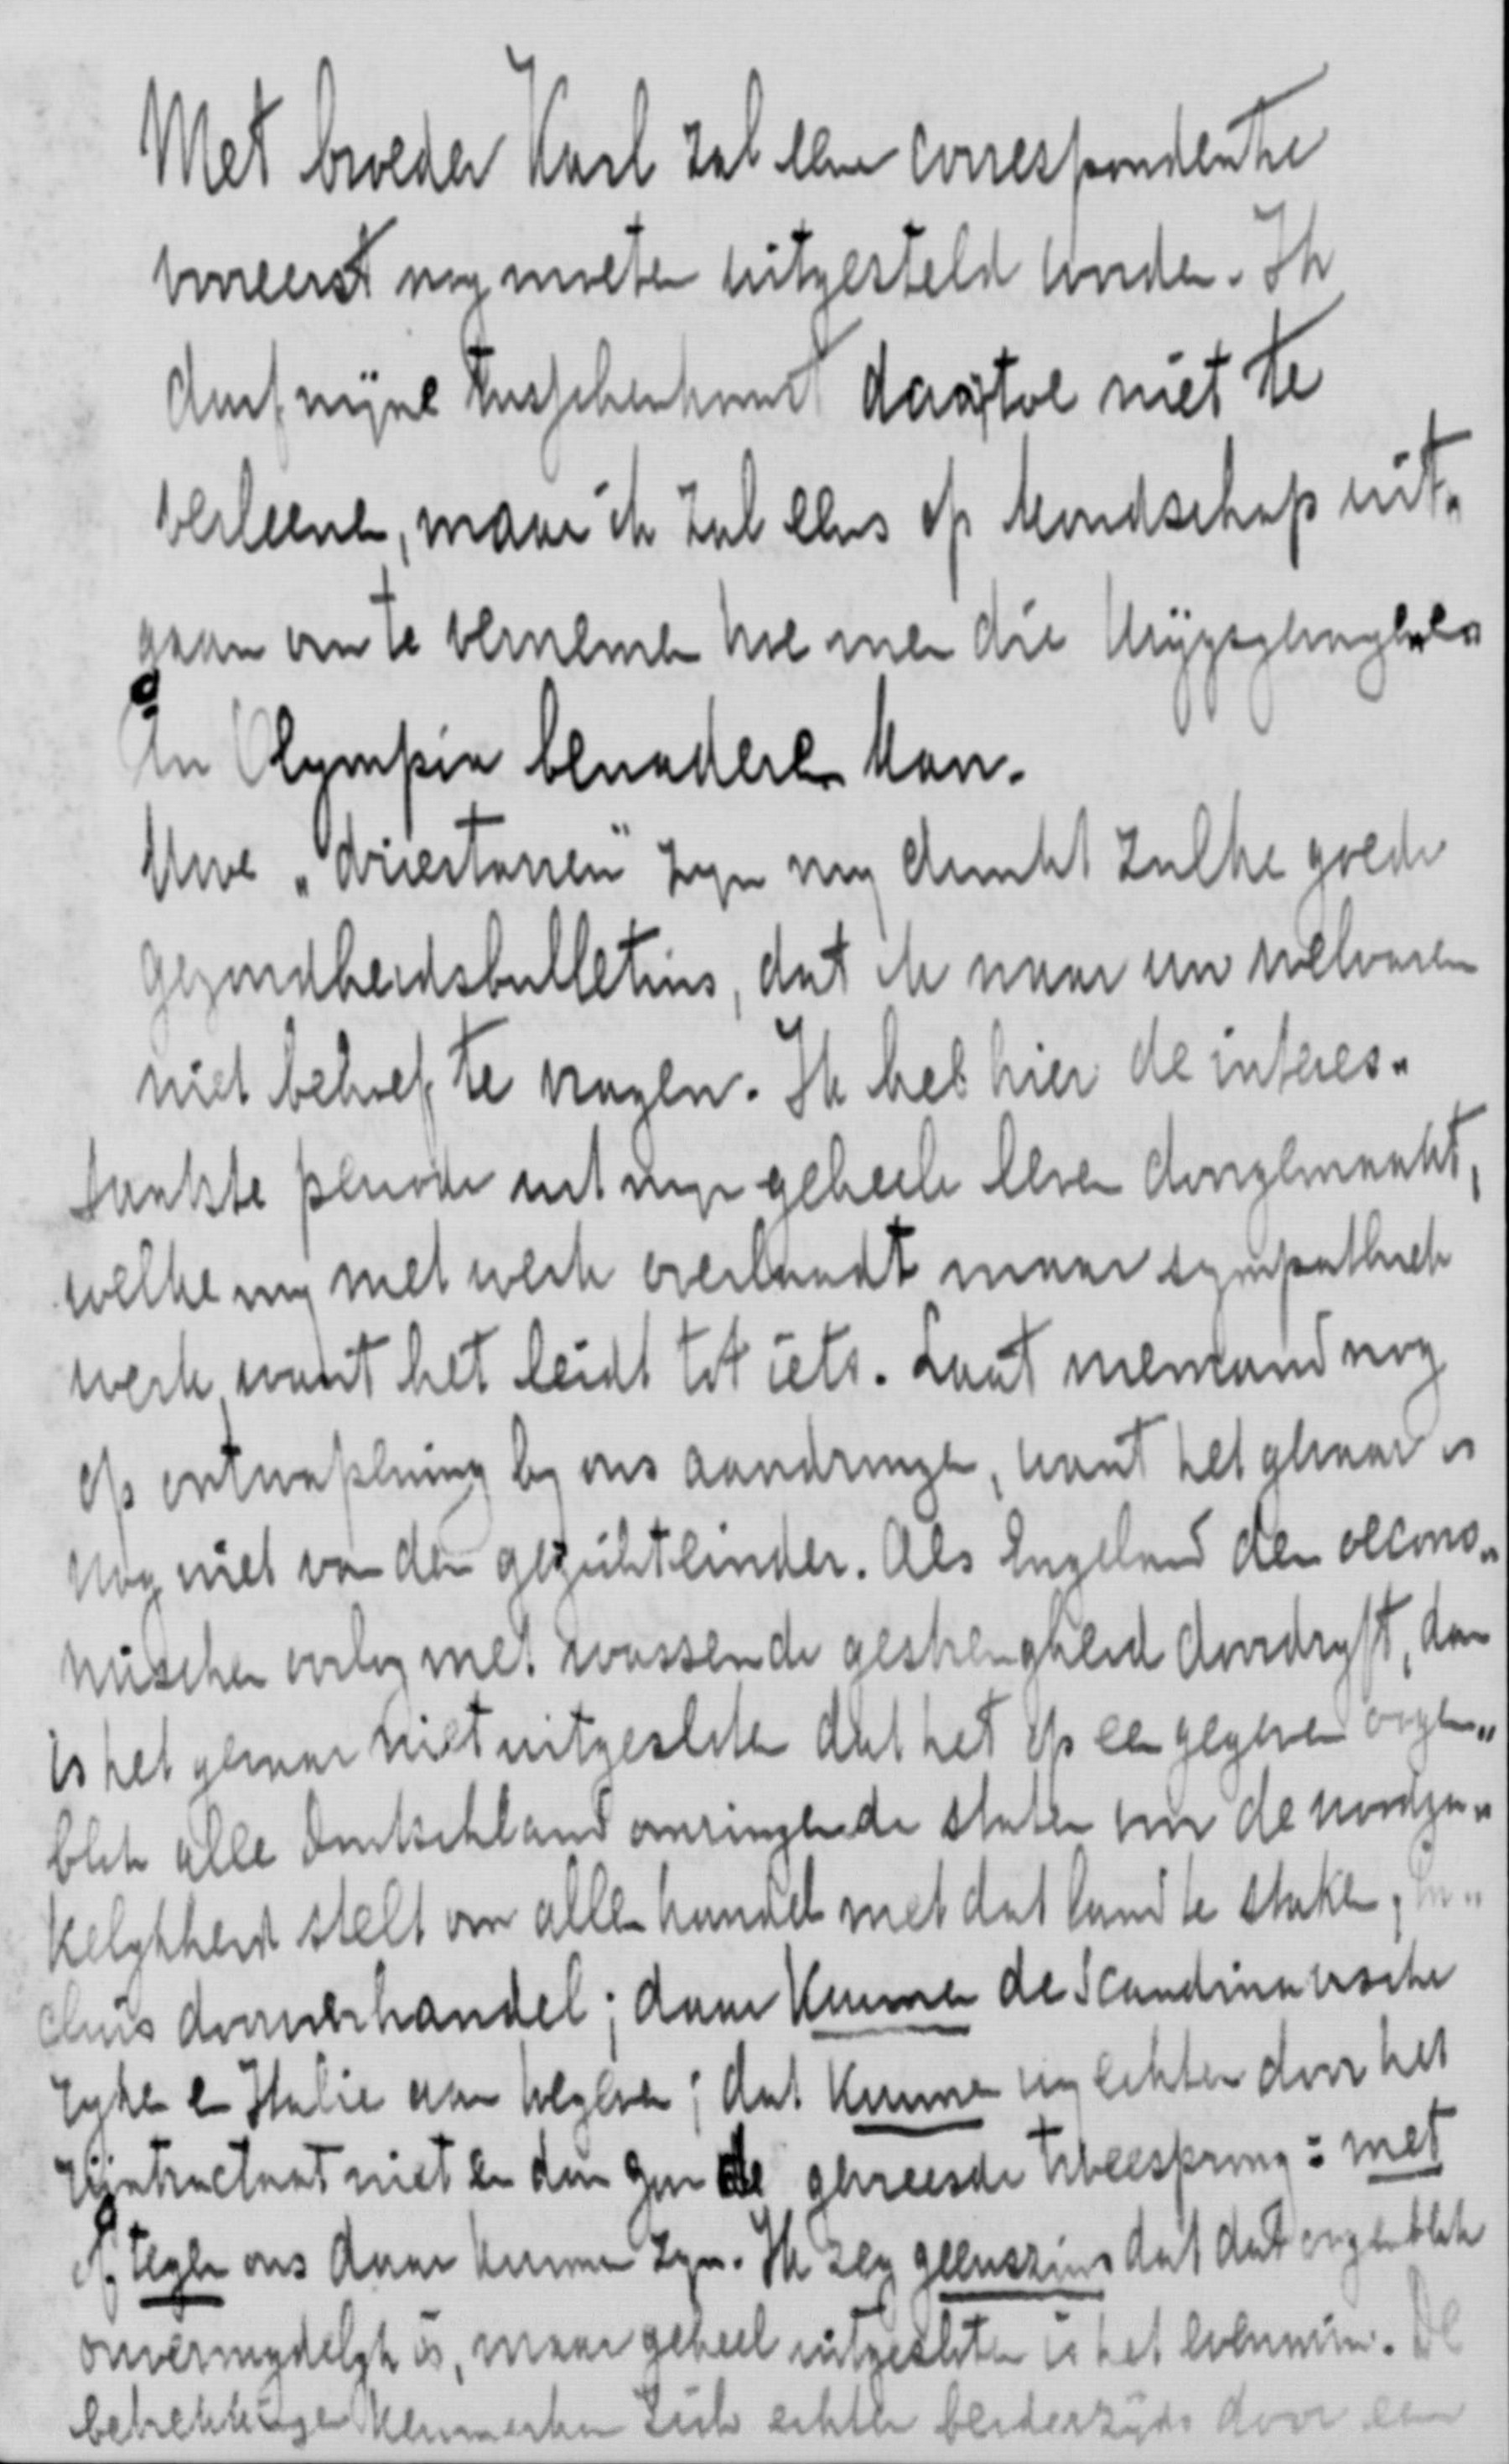 Met broeder Karl zal eene correspondentie
vooreerst nog moeten uitgesteld worden. Ik
durf mijne tusschenkomst daartoe niet te
verleenen, maar ik zal eens op kondschap uit„
gaan om te vernemen hoe men die krijgsgevangenen
in Olympia benaderen kan.
Uwe „driestarren" zyn my dunkt zulke goede
gezondheidsbulletins, dat ik naar uw welvaren
niet behoef te vragen. Ik heb hier de interes„
santste periode uit myn geheele leven doorgemaakt,
welke my met werk overlaadt maar sympathiek
werk, want het leidt tot iets. Laat niemand nog
op ontwapening by ons aandringen, want het gevaar is
nog niet van den gezichteinder. Als Engeland den oecono„
mischen oorlog met wassende gestrengheid doordryft, dan
is het gevaar niet uitgesloten dat het op een gegeven oogen„
blik alle Duitschland omringende staten voor de noodza„
kelykheid stelt om allen handel met dat land te staken, in„
cluis doorvoerhandel; daar kunnen de Scandinavische
ryken en Italie aan toegeven; dat kunnen wy echter door het
Rijntractaat niet en dan zou de gevreesde tweesprong: met
of tegen ons daar kunnen zyn. Ik zeg geenszins dat dat oogenblik
onvermydelyk is, maar geheel uitgesloten is het evenmin. De
betrekkingen kenmerken zich echter beiderzijds door een